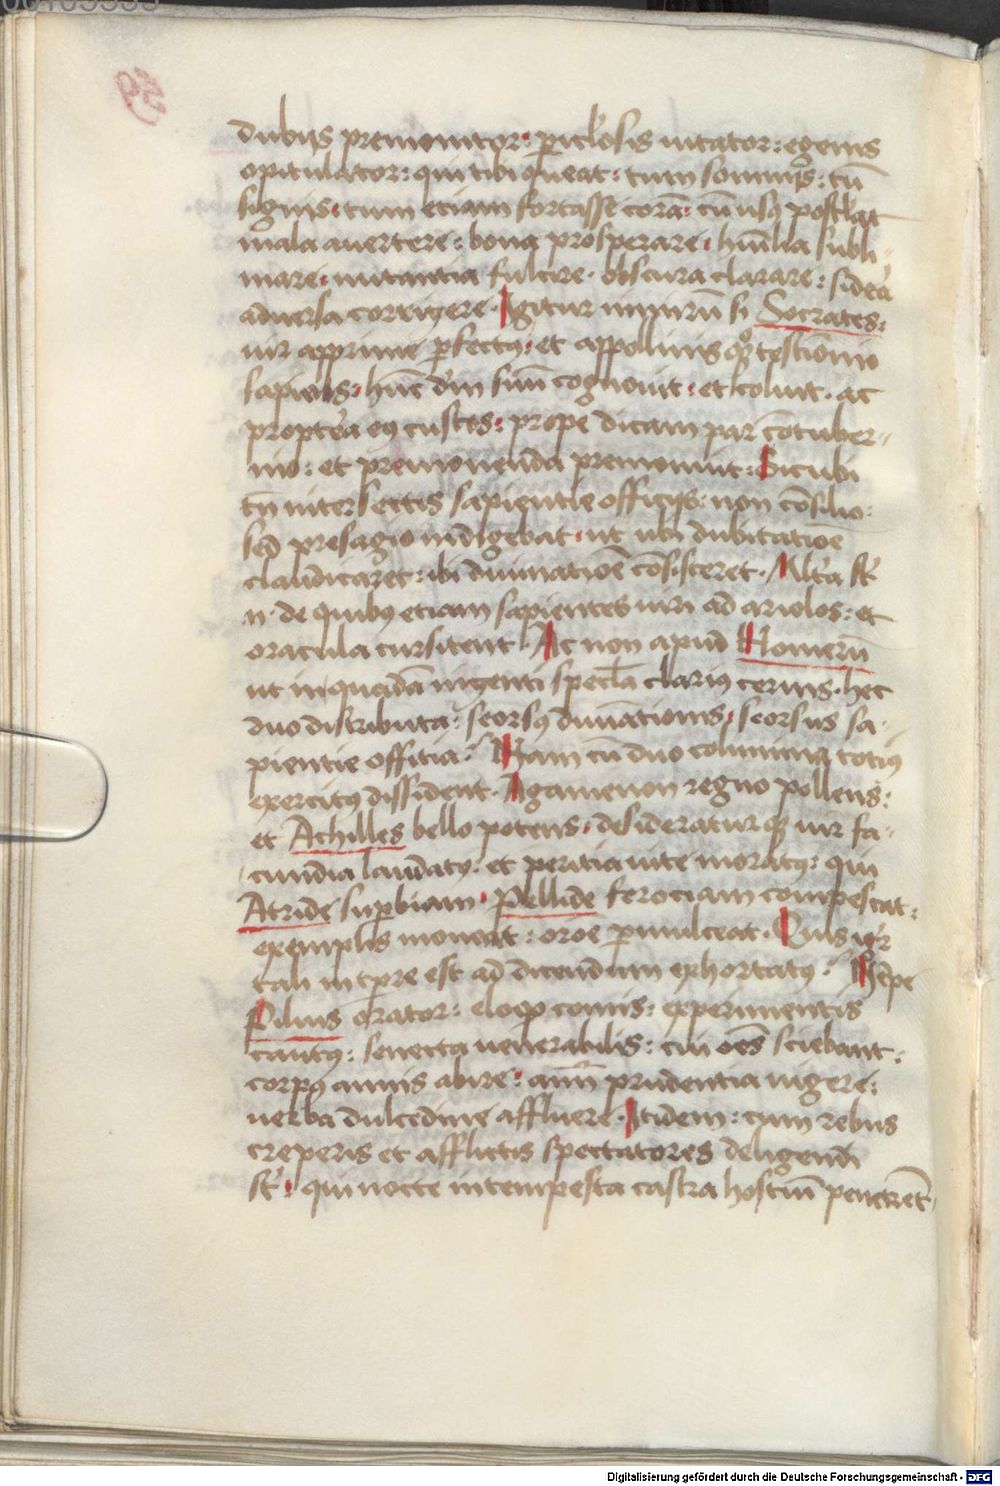 dubijs premonitor: pericl'osis uitator: egenis
opitulator: qui tibi queat: tum somnijs: tū
signis: tum etiam fortasse corā: cū usꝫ postl'at
mala auertere: bona prosperare: humilia subli-
mare: nutantia fulcire· obscura clarare: sidēa
aduersa corrigere. Igitur mirū si Socrates:
uir apprime ꝑfectꝰ: et appollinis qꝫ tꝑstīonio
sapiens: hūc dm̄ suū cognouit: et coluit· ac
propterea eꝰ custos: prope dicam par cōtuber-
nio: et premonenda premonuit: Sicubi
tn̄ intersectis sapientie officijs: non cōsilio:
sed presagio indigebat: ut ubi dubitatiōe
claudicaret: ibi diuinatiōe cōsisceret. Alt'a st̄
·n· de quibꝰ etiam sapientes uiri ad ariolos: et
oracula cursitent. Ac non apud Homerū
ut in quadā ingenti specl'a clarius cernis· hec
duo distributa: seorsꝰ diuīationis, seorsus sa-
pientie offitia? Nam cū duo columina totiꝰ
exercitꝰ dissident. Agamenon regno pollens:
et Achilles bello potens: desideraturqꝫ uir fa-
cundia laudatꝰ: et peritia uite moratꝰ: qui
Atride supbiam: Pellide ferociam compescat:
exemplis moneat: oroē ꝑmulceat. Quis igr̄
tali in tp̄re est ad dicendum exhortatꝰ? Nēpe
Pilius orator: eloqo comis: experimentis
cautꝰ: senecta uenerabilis: cui oēs sciebant:
corpꝰ annis abire: aīm prudentia uigere:
uerba dulcedine affluere. Itidem: cum rebus
creperis et afflictis spectatores deligendi
st̄: qui nocte intempesta castra hostiū penetrēt·
Digitalisierung gefördert durch die Deutsche Forschungsgemeinschaft - DFG